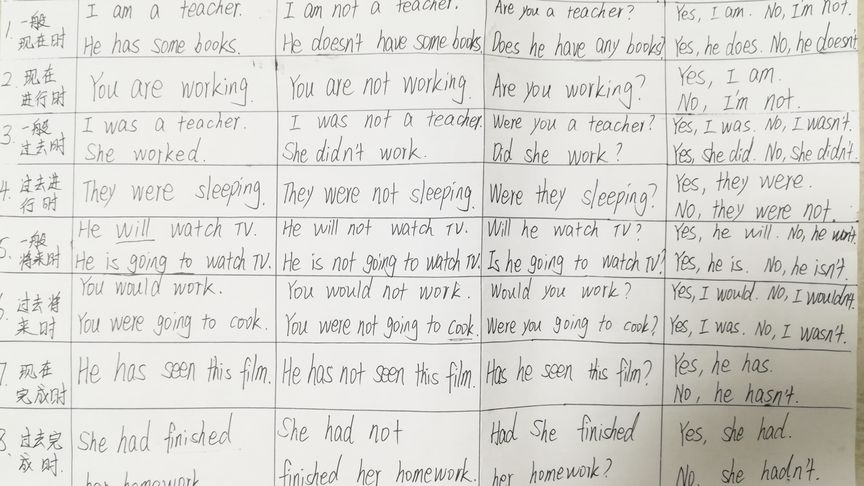 1. 一般 I am a teacher. I am not a teacher. Are you a teacher? Yes, I am. No, I'm not.
现在时 He has some books. He doesn't have some books Does he have any books? Yes, he does. No, he doesn't
2. 现在 You are working. You are not working. Are you working? Yes, I am.
进行时 No, I'm not.
3. 一般 I was a teacher. I was not a teacher. Were you a teacher? Yes, I was. No, I wasn't.
过去时 She worked. She didn't work. Did she work? Yes, she did. No, she didn't.
4. 过去进 They were sleeping. They were not sleeping. Were they sleeping? Yes, they were.
行时 No, they were not.
5. 一般 He will watch TV. He will not watch TV. Will he watch TV? Yes, he will. No, he won't.
将来时 He is going to watch TV. He is not going to watch TV. Is he going to watch TV? Yes, he is. No, he isn't.
过去将 You would work. You would not work. Would you work? Yes, I would. No, I wouldn't.
来时 You were going to cook. You were not going to cook. Were you going to cook? Yes, I was. No, I wasn't.
7. 现在 He has seen this film. He has not seen this film. Has he seen this film? Yes, he has.
完成时 No, he hasn't.
8. 过去完 She had finished She had not Had She finished Yes, she had.
成时. her homework finished her homework. her homework? No, she hadn't.